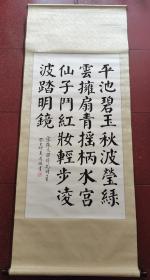 平池碧玉秋波瑩綠
雲擁扇青摇柄水宮
仙子鬥紅妝輕步凌
波踏明鏡